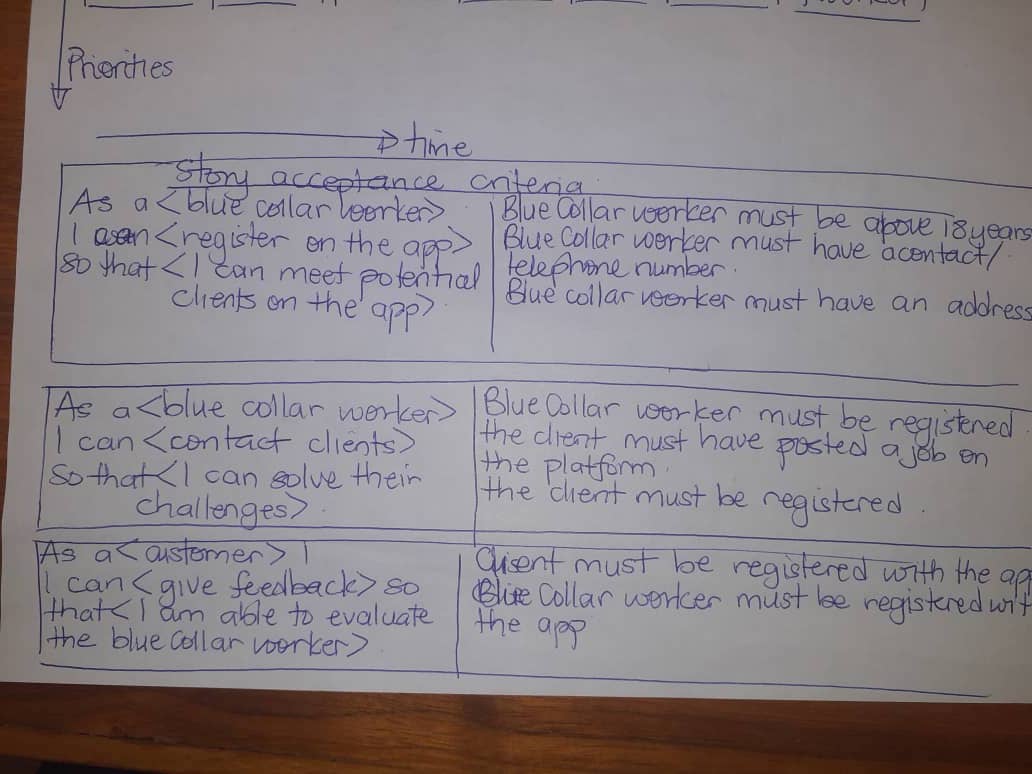 Priorities
time
Story acceptance criteria
As a <blue collar worker>
I can <register on the app>
so that <I can meet potential
clients on the app>
Blue Collar worker must be above 18 years
Blue Collar worker must have a contact/
telephone number.
Blue collar worker must have an address
As a <blue collar worker>
I can <contact clients>
So that <I can solve their
challenges>.
Blue Collar worker must be registered.
the client must have posted a job on
the platform.
the client must be registered.
As a <customer> I
I can <give feedback> so
that <I am able to evaluate
the blue collar worker>.
Client must be registered with the ap
Blue Collar worker must be registered wit
the app